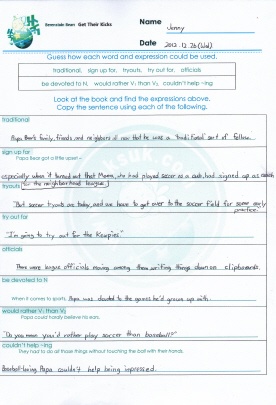 Berenstain Bears Get Their Kicks
Name Jenny
Date 2012.12.26(Wed)
Guess how each word and expression could be used.
traditional, sign up for, tryouts, try out for, officials
be devoted to N, would rather V₁ than V₂, couldn't help ~ing
Look at the book and find the expressions above.
Copy the sentence using each of the following.
traditional
Papa Bear's family, friends, and neighbors all knew that he was a "traditional" sort of fellow.
sign up for
Papa Bear got a little upset –
especially when it turned out that Mama, who had played soccer as a cub, had signed up as coach
in the neighborhood league.
tryouts
"But soccer tryouts are today, and we have to get over to the soccer field for some early
practice."
try out for
"I'm going to try out for the Kewpies."
officials
There were league officials moving among them writing things down on clipboards.
be devoted to N
When it comes to sports, Papa was devoted to the games he'd grown up with.
would rather V₁ than V₂
Papa could hardly believe his ears.
"Do you mean you'd rather play soccer than baseball?"
couldn't help ~ing
They had to do all those things without touching the ball with their hands.
Baseball-loving Papa couldn't help being impressed.